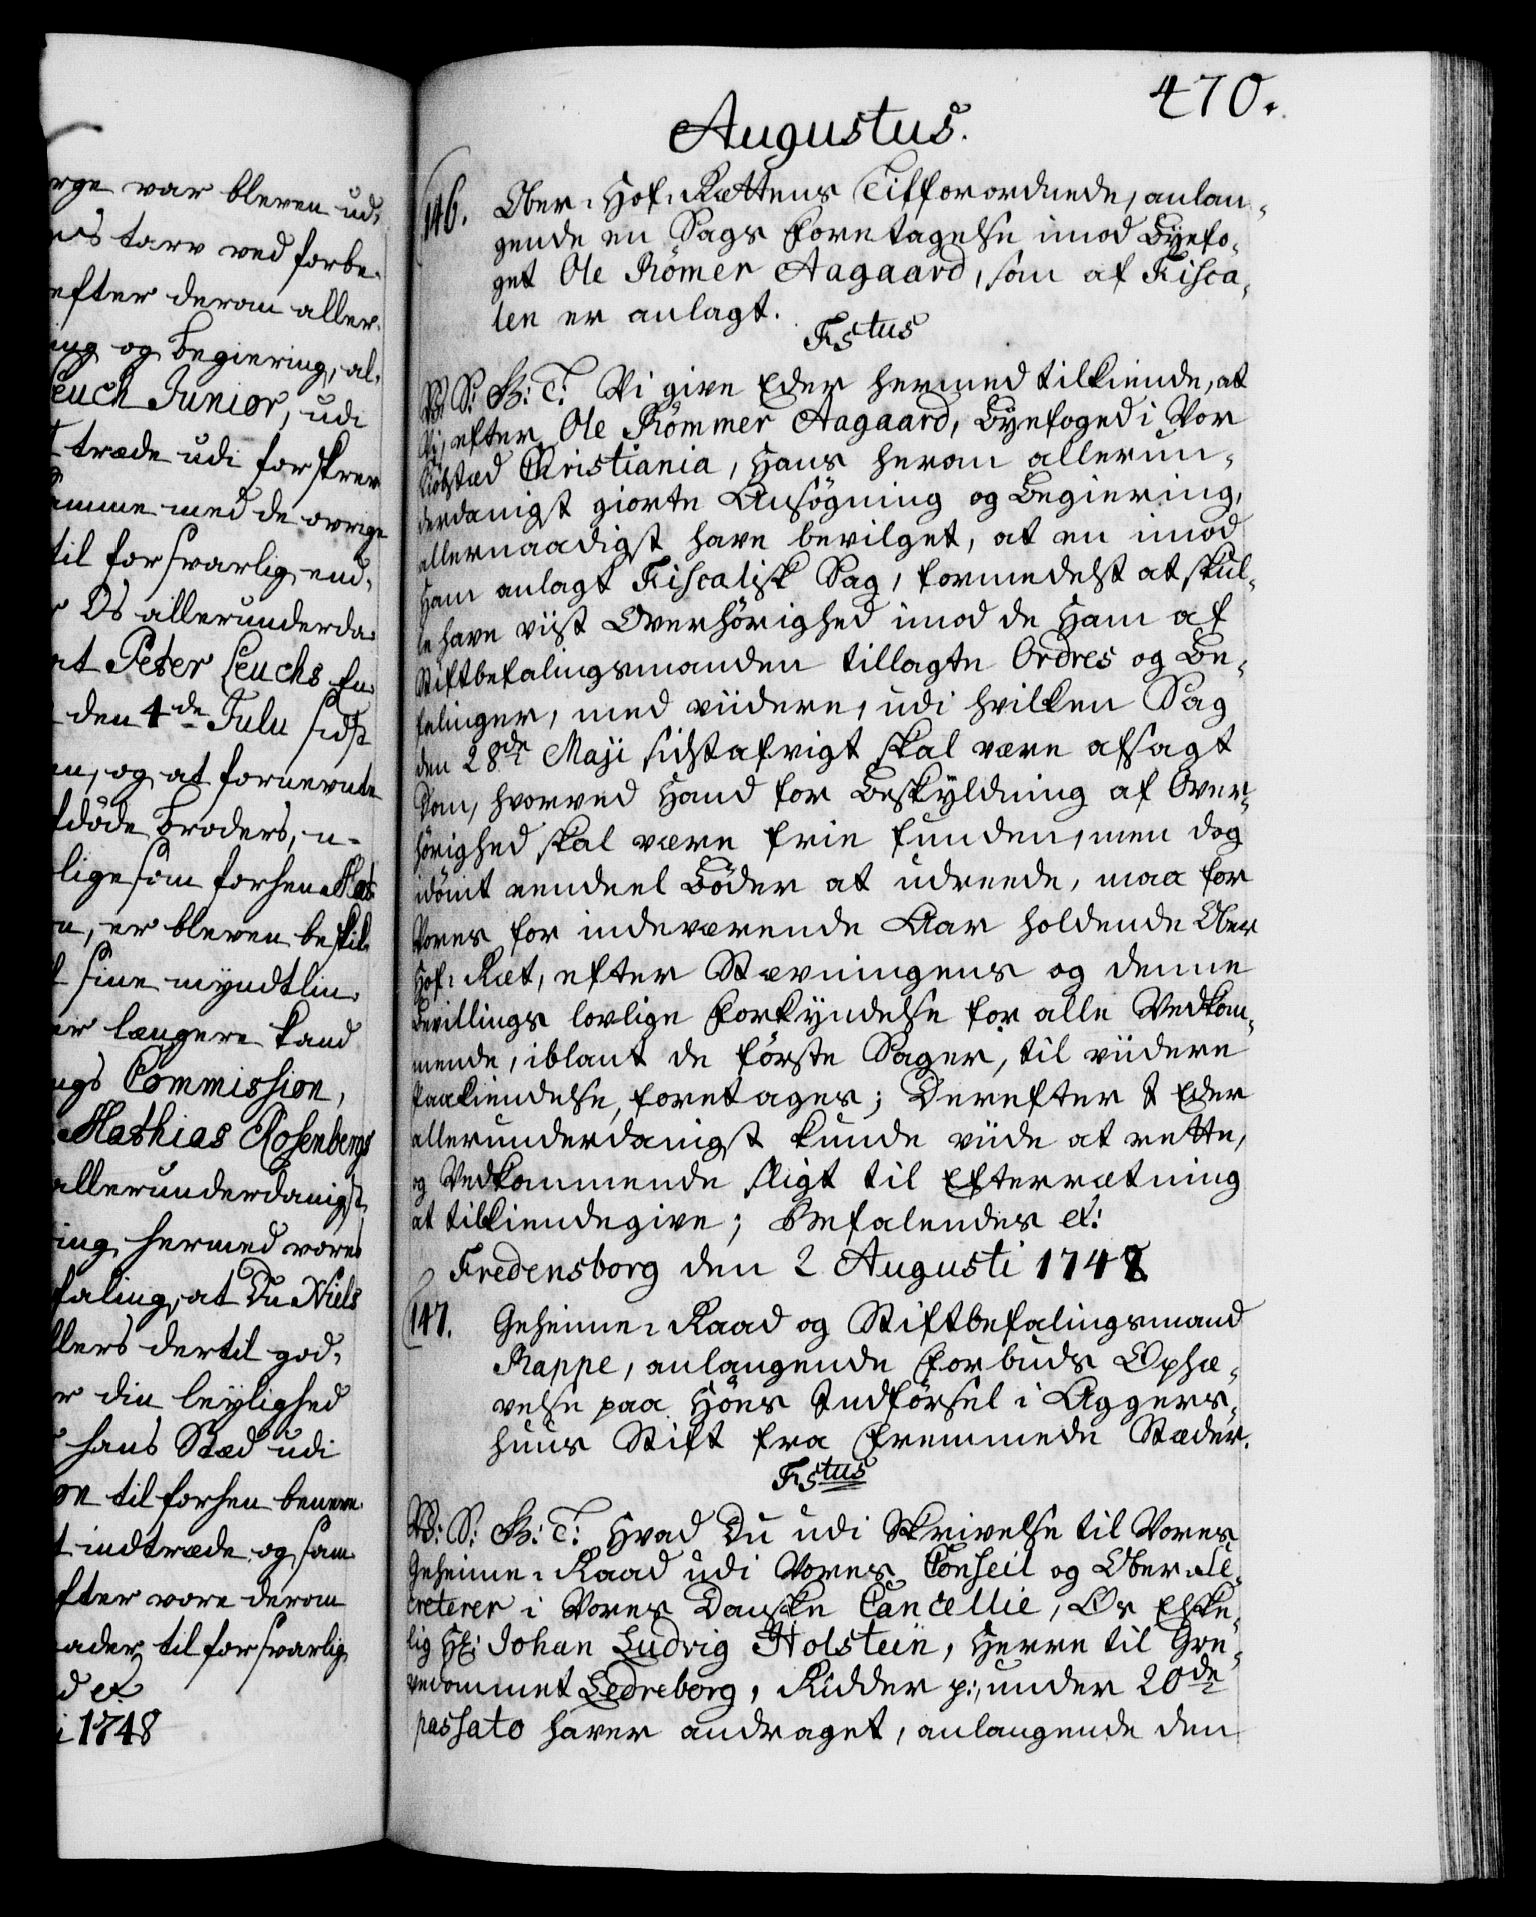 rge var bleven ud-
tarv ved forbe-
efter derom aller-
ing og Begiering, al-
euch Junior, udi
træde udi forskrev
amme med de øvrige
til forsvarlig end-
Os allerunderda-
at Peter Leuchs fu-
den 4de Julii sidst
en, og at fornevnte
fdöde Broders, u-
ligesom forhen
er bleven bestil-
sine myndtlin-
er længere kand
ngs Commission,
Mathias Rosenbergs
allerunderdanigst
ing, hermed vores
faling, at Du Niels
llers dertil god-
r din leylighed
hans Stæd udi
til forhen benevn-
indtræde og sam
fter vore derom
ader til forsvarlig
d et.
i 1748
470.
Augustus.
146. Ober-Hof-Rettens Tilforordnede, anlan-
gende en Sags Foretagelse imod Byefo-
get Ole Römer Aagaard, som af Fisca-
len er anlagt.
Fstus
V: S: G: T: Vi give Eder hermed tilkiende, at
Vi, efter Ole Römmer Aagaard, Byefoged i Vor
Kiøbstæd Christiania, Hans herom allerun-
derdanigst giorte Ansögning og Begiering,
allernaadigst have bevilget, at en imod
Ham anlagt Fiscalisk Sag, formedelst at skul-
le have viist Overhörighed imod de Ham af
Stiftbefalingsmanden tillagte Ordres og Be-
falinger, med viidere, udi hvilken Sag
den 28de Maji sidstafvigt skal være afsagt
Dom, hvorved Hand for Beskyldning af Over-
hörighed skal være frie funden, men dog
idömt eendeel Böder at udreede, maa for
Vores for indeværende Aar holdende Ober
Hof-Ræt, efter Stævningens og denne
Bevillings lovlige Forkyndelse for alle Vedkom-
mende, iblant de förste Sager, til viidere
Paakiendelse, foretages; Derefter I Eder
allerunderdanigst kunde viide at rette,
og Vedkommende sligt til Efterretning
at tilkiendegive; Befalendes et:
Fredensborg den 2 Augusti 1748
147. Geheime-Raad og Stiftbefalingsmand
Rappe, anlangende Forbuds Ophæ-
velse paa Höes Indförsel i Aggers-
huus Stift fra fremmede Stæder.
Fstus
V: S: G: T: Hvad Du udi Skrivelse til Vores
Geheime-Raad udi Vores Conseil og Ober-Se-
creterer i Vores Danske Cancellie, Os Elske-
lig Hr: Johan Ludvig Holstein, Herre til Gre-
vedommet Ledreborg, Ridder p:, under 20de
passato haver andraget, anlangende den